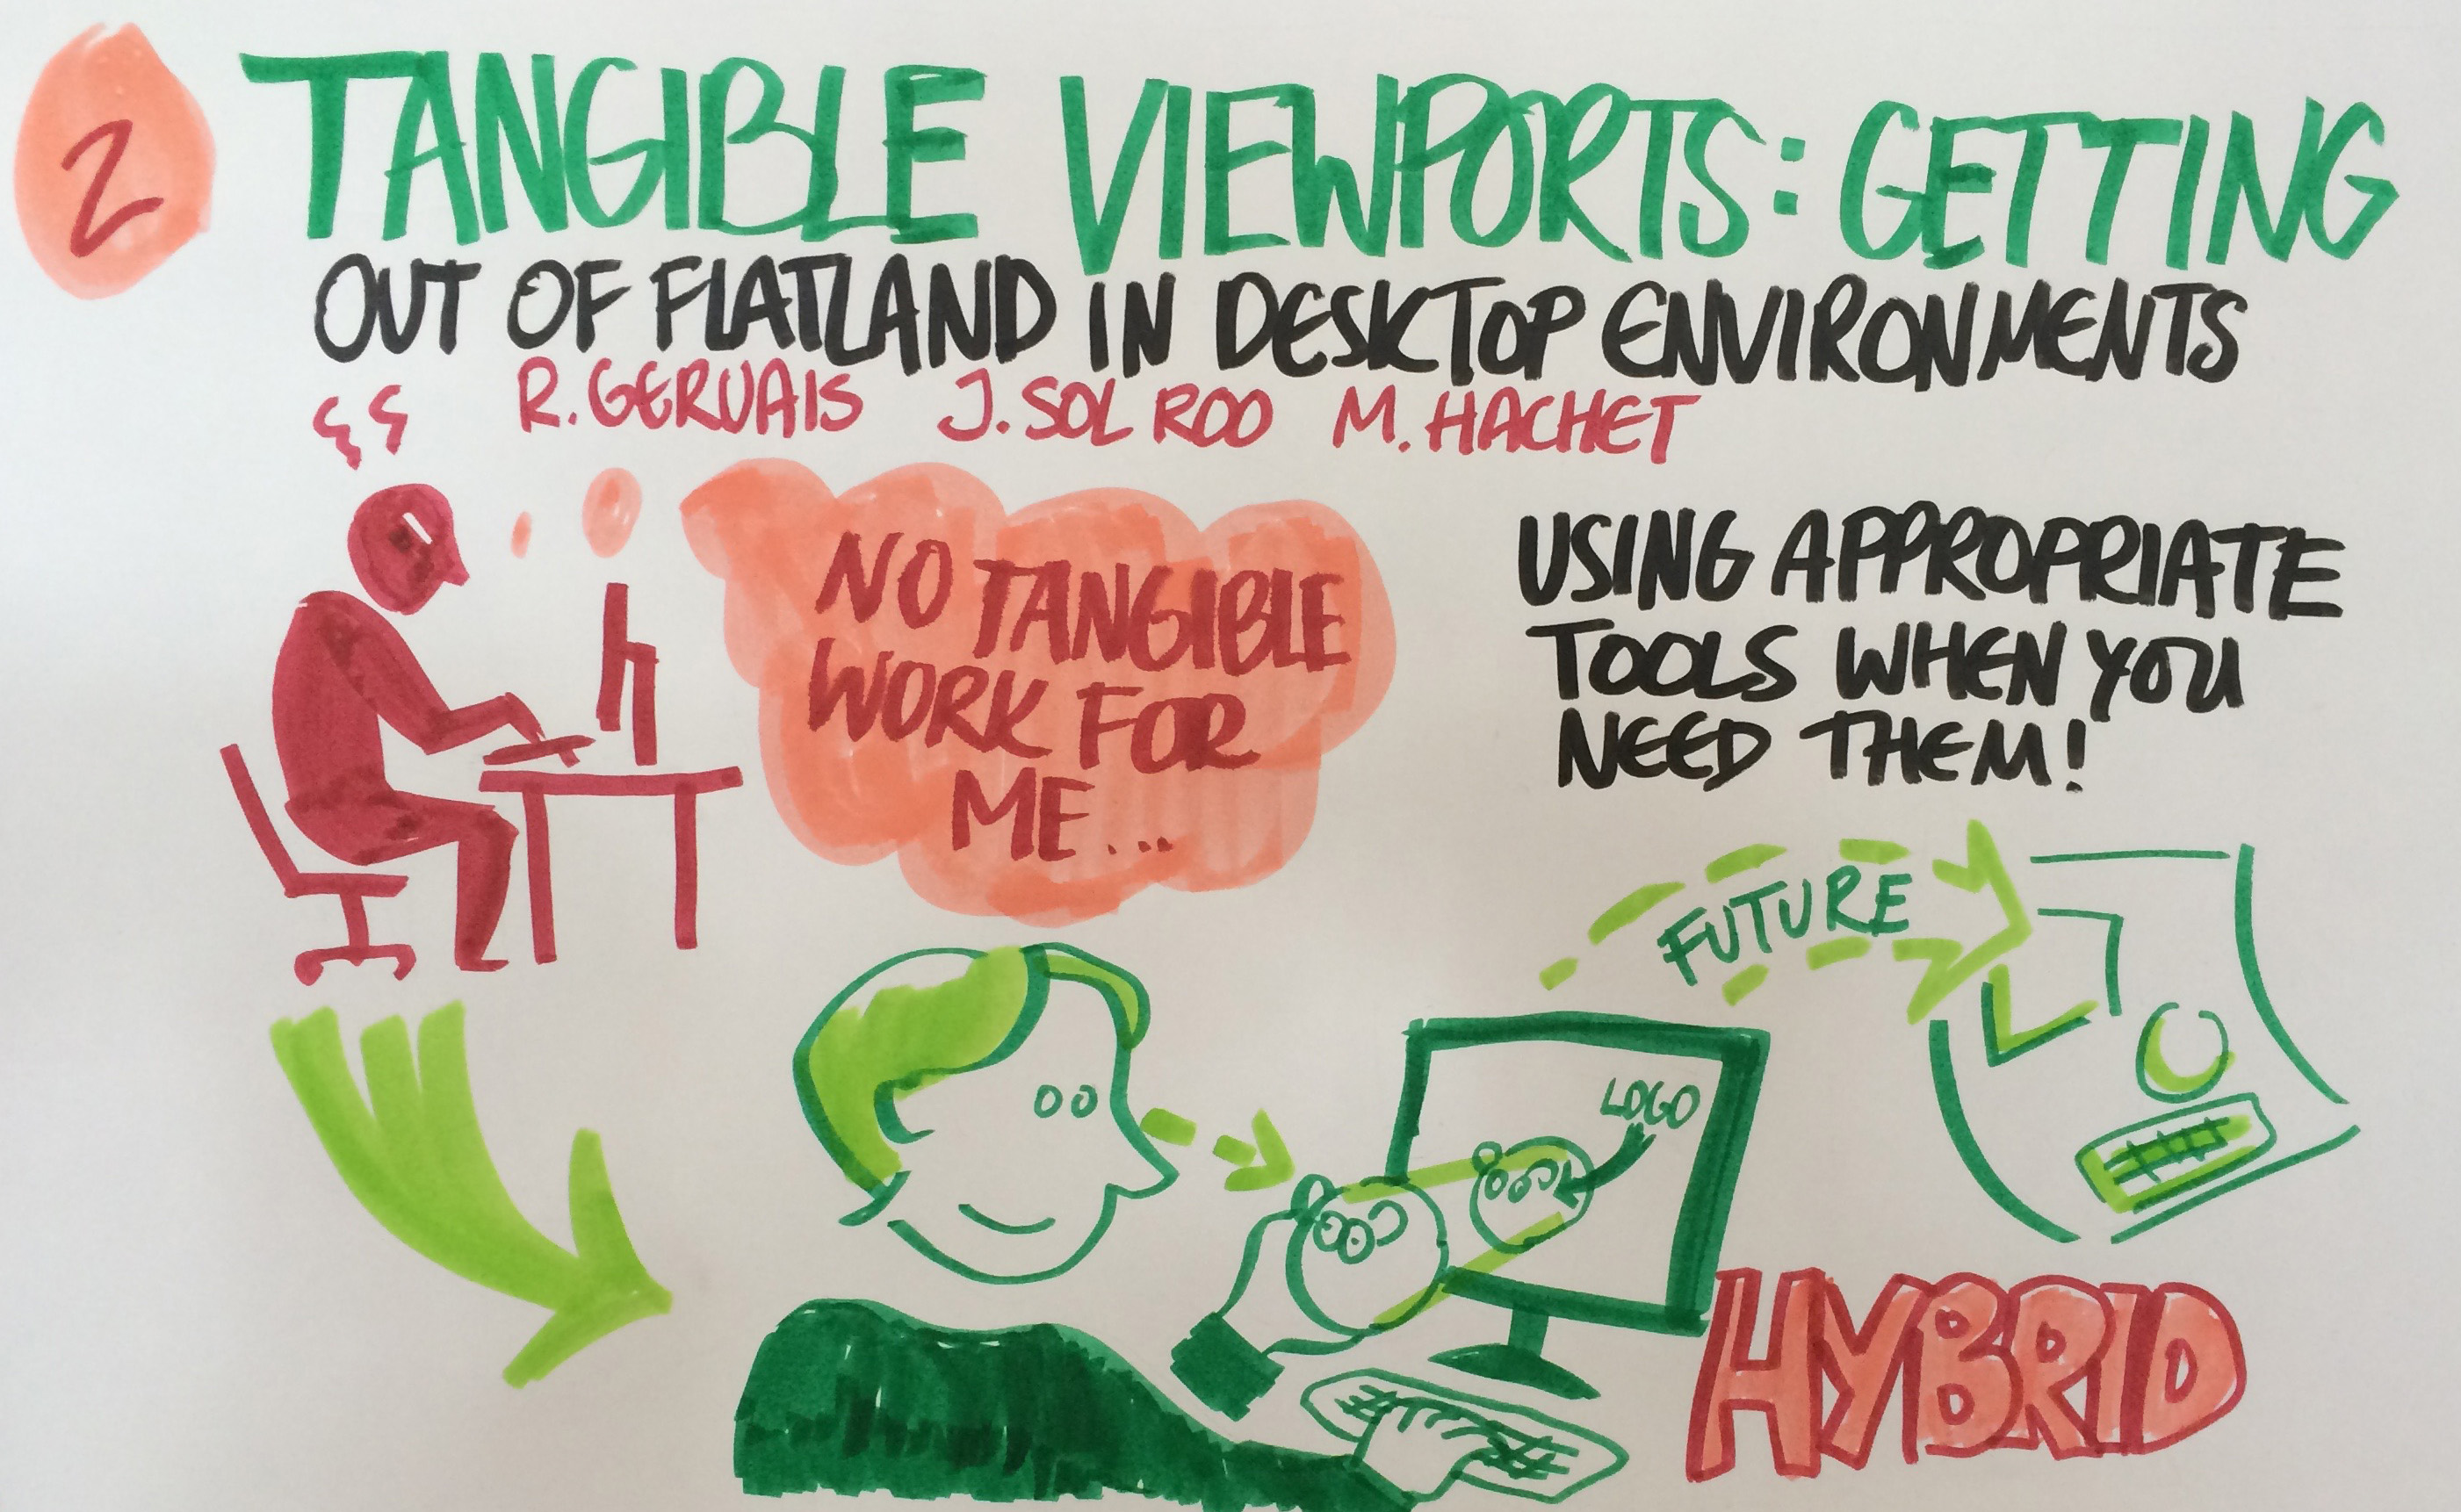 2
TANGIBLE VIEWPORTS: GETTING
OUT OF FLATLAND IN DESKTOP ENVIRONMENTS
R. GERVAIS J. SOL ROO M. HACHET
NO TANGIBLE
WORK FOR
ME...
USING APPROPRIATE
TOOLS WHEN YOU
NEED THEM!
FUTURE
LOGO
HYBRID